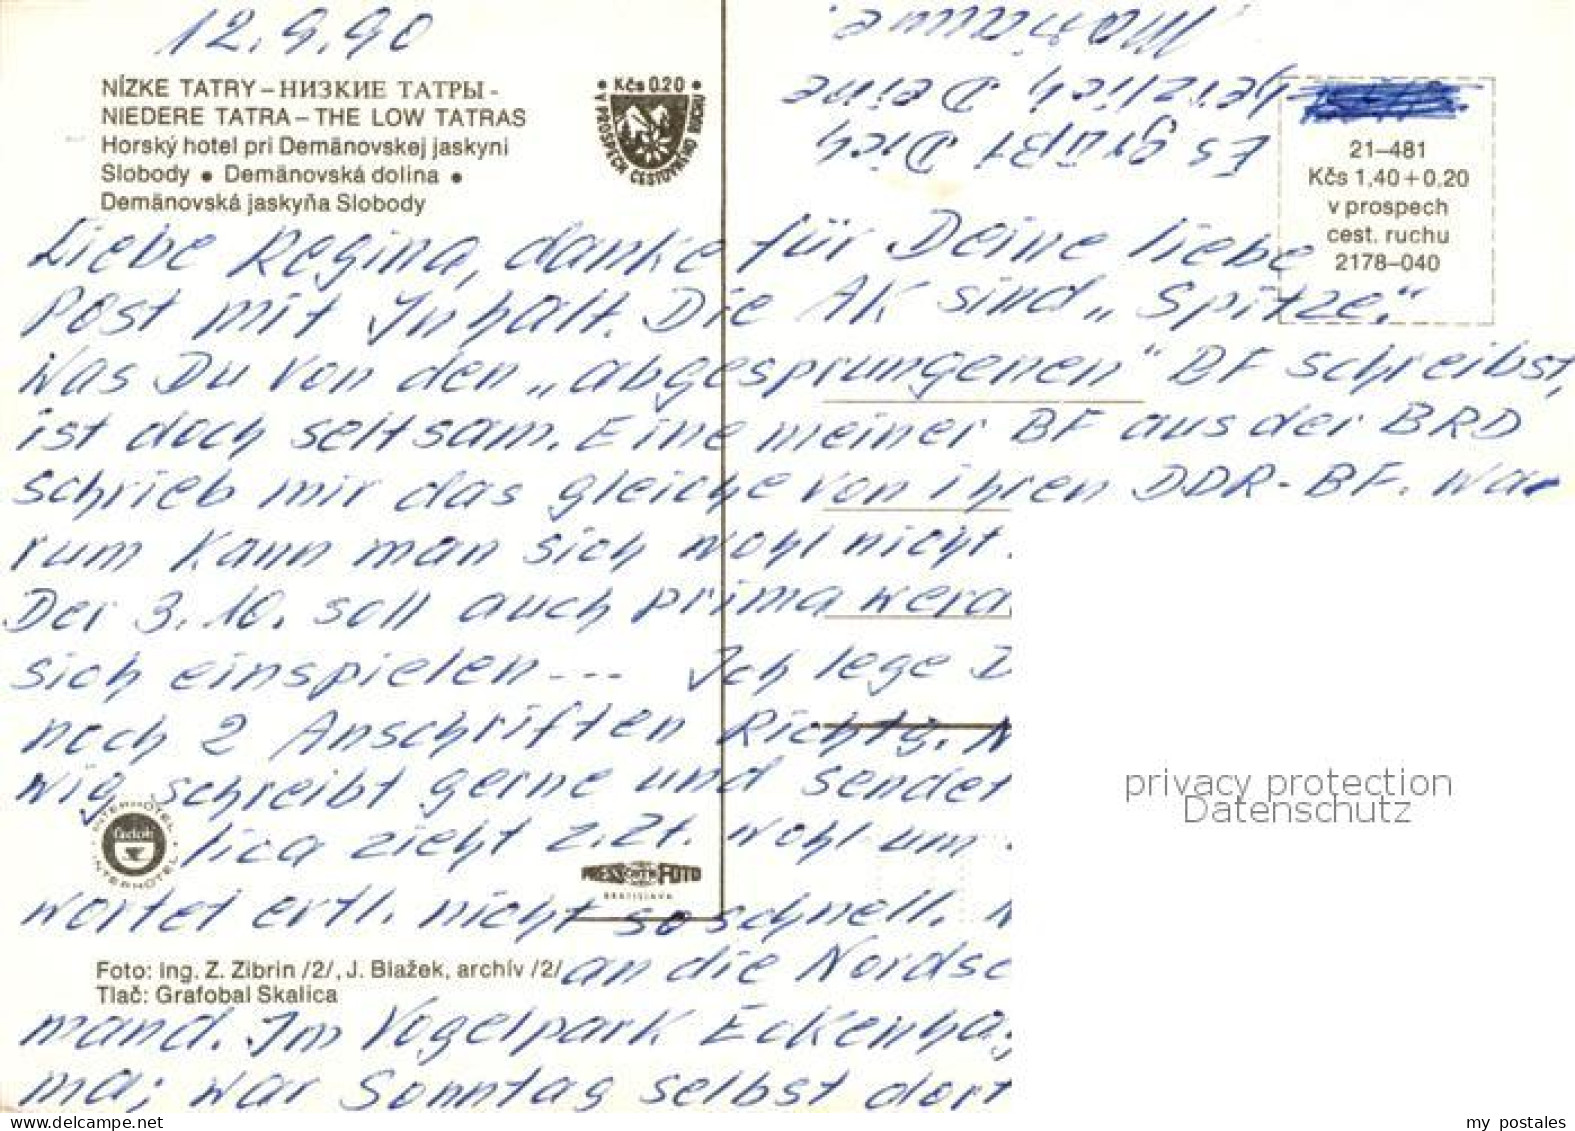 12.9.90
NÍZKE TATRY – НИЗКИЕ ТАТРЫ -
NIEDERE TATRA – THE LOW TATRAS
Horský hotel pri Demänovskej jaskyni
Slobody • Demänovská dolina •
Demänovská jaskyňa Slobody
• Kčs 0.20 •
V PROSPECH CESTOVNÉHO RUCHU
21–481
Kčs 1,40 + 0,20
v prospech
cest. ruchu
2178–040
Liebe Regina, danke für Deine liebe
Post mit Inhalt. Die AK sind „Spitze."
Was Du von den „abgesprungenen" BF schreibst,
ist doch seltsam. Eine meiner BF aus der BRD
schrieb mir das gleiche von ihren DDR-BF. Wa-
rum kann man sich wohl nicht
Der 3.10. soll auch prima werd
sich einspielen --- Ich lege D
noch 2 Anschriften Richtg. N
wig schreibt gerne und sendet
lica zieht z.Zt. wohl um
wortet ertl. nicht so schnell.
an die Nordse
mand. Im Vogelpark Eckenha
ma; war Sonntag selbst dort
Es grüßt Dich
herzlich Deine
INTERHOTEL
Čedok
INTERHOTEL
PRESSFOTO
BRATISLAVA
Foto: Ing. Z. Zibrin /2/, J. Blažek, archív /2/
Tlač: Grafobal Skalica
privacy protection
Datenschutz
my postales